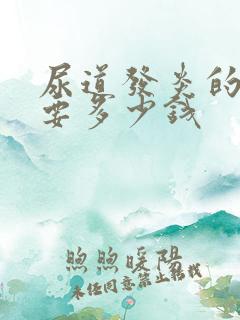 尿道發炎的
要多少錢
煦煦暖陽
未经同意禁止转载